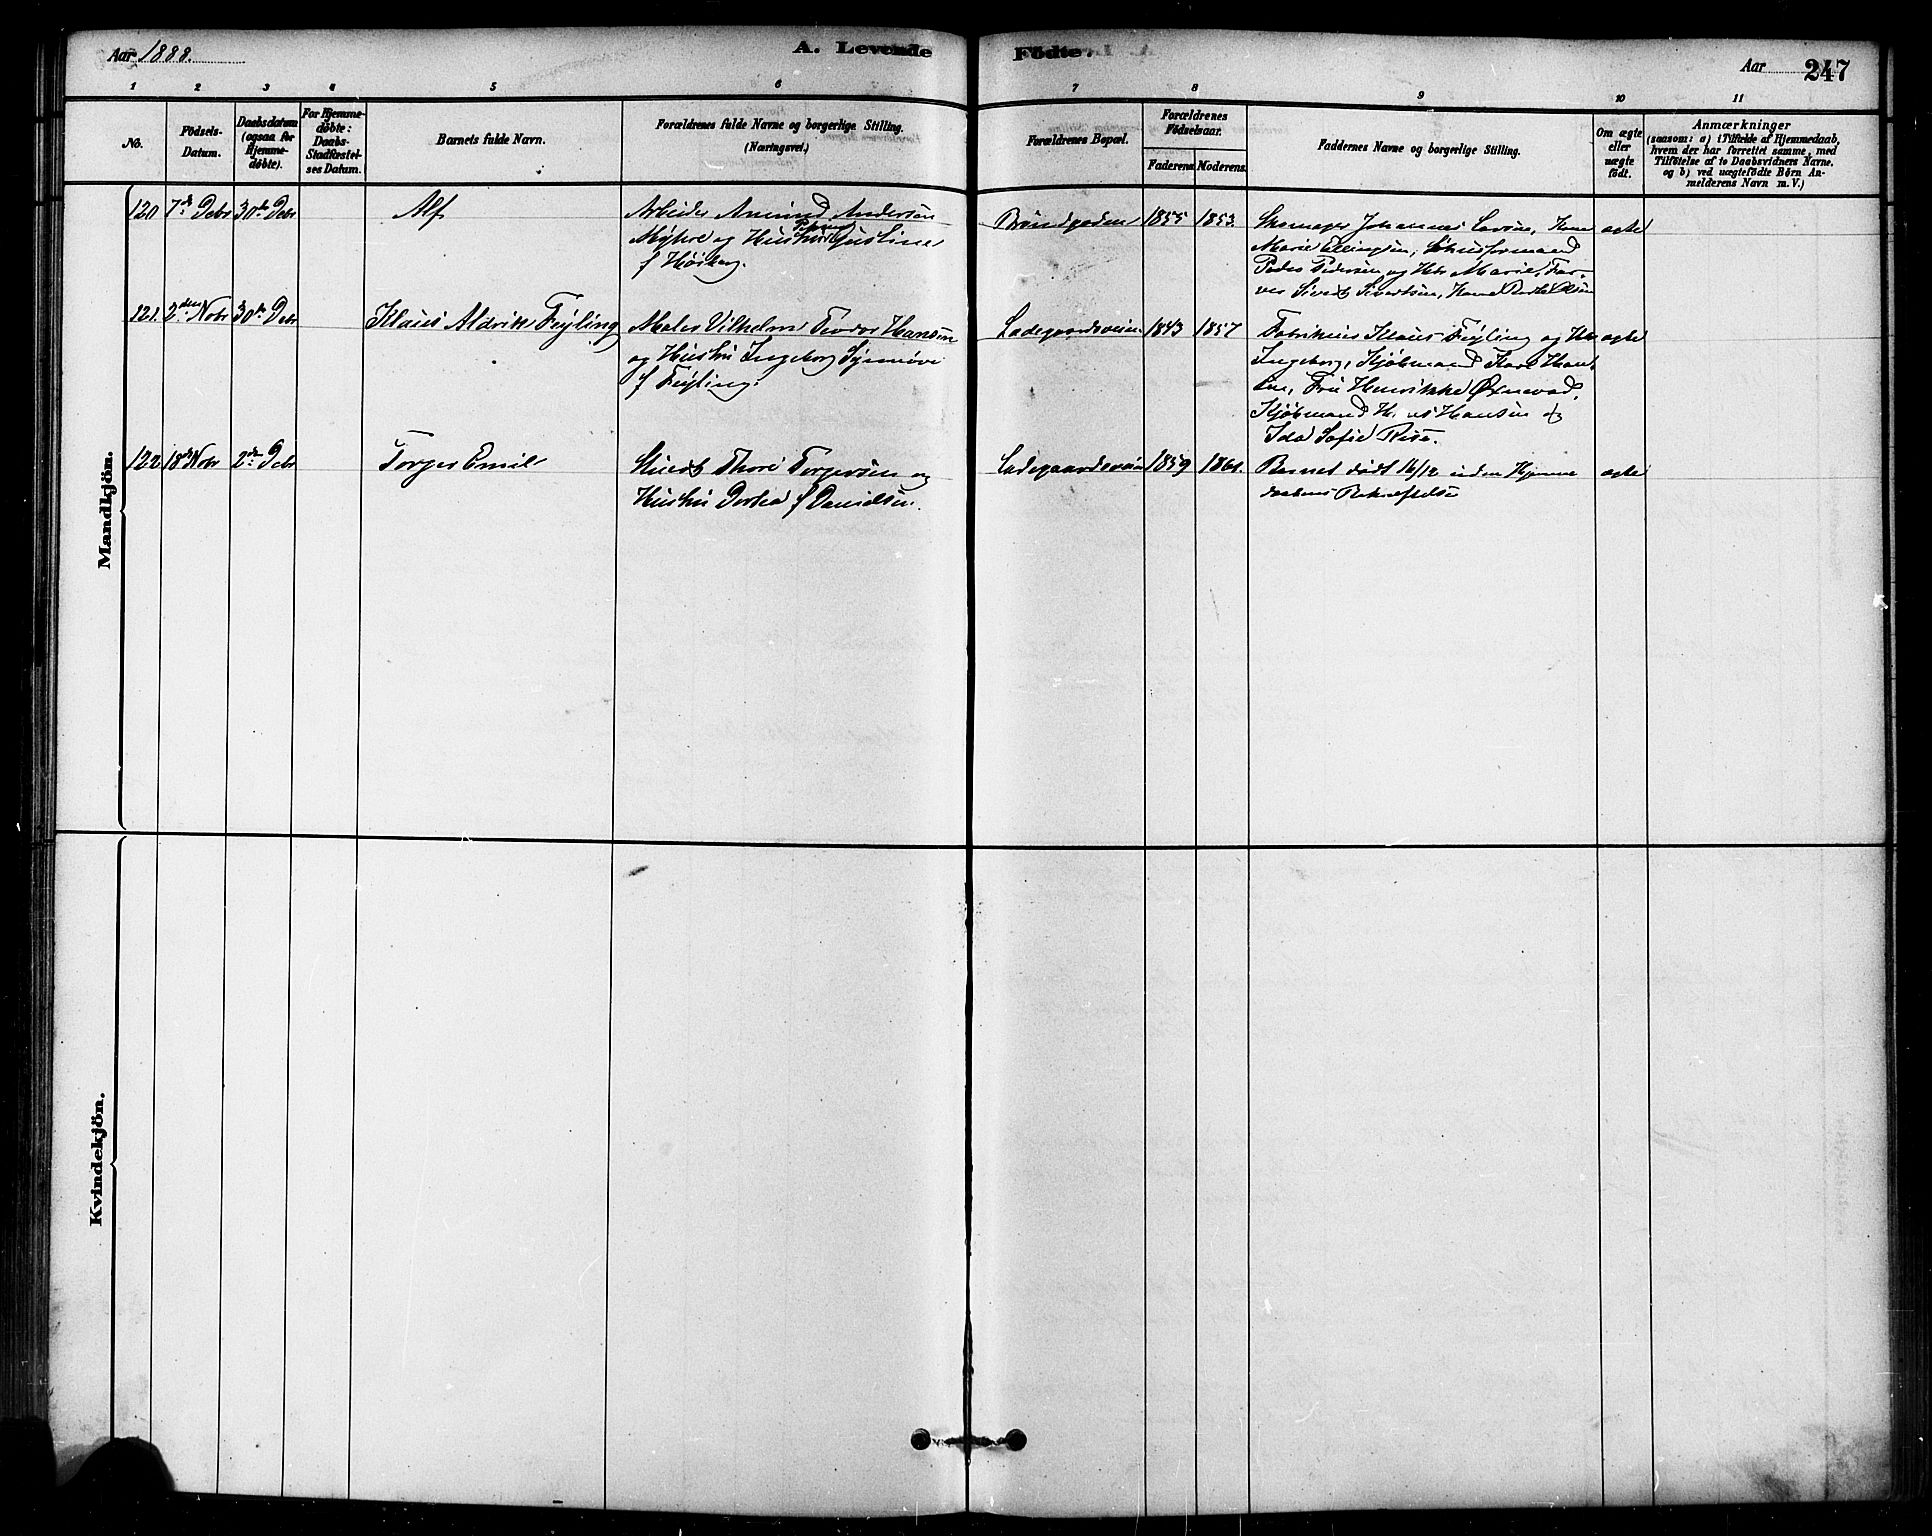 Aar 1888.
A. Levende
Födte.
Aar
247
1 2 3 4 5 6 7 8 9 10 11
No.
Födsels-
Datum.
Daabsdatum
(ogsaa for
Hjemme-
döbte).
For Hjemme-
døbte:
Daabs-
Stadfæstel-
ses Datum.
Barnets fulde Navn.
Forældrenes fulde Navne og borgerlige Stilling.
(Næringsvei.)
Forældrenes Bopæl.
Forældrenes
Födselsaar.
Faderens Moderens.
Faddernes Navne og borgerlige Stilling.
Om ægte
eller
uægte
födt.
Anmærkninger
(saasom: a) i Tilfælde af Hjemmedaab,
hvem der har forrettet samme, med
Tilföielse af to Daabsvidners Navne.
og b) ved uægtefödte Börn An-
melderens Navn m. V.)
Mandkjön.
120 7de Debr 30te Debr
Alf
Arbeider Amund Andersen
Myhre og Hustru Gusline
f Höiberg.
1855 1853
Skomager Johannes
Marie Ellingsen,
Peder Pedersen og Marie,
Sivert Sivertsen,
ægte
121. 2den Nobr 30te Debr
Klaus Aldrik Feyling
Maler Vilhelm Teodor Hansen
og Hustru Ingeborg Synnöve
f Feyling.
Ladegaardsveien
1843 1857
Klaus Feyling og
Ingeborg, Kjøbmand
Fru Henrikke Øxnevad,
Kjøbmand Hans Hansen &
Ida Sofie Rise.
ægte
122 18de Nobr 2den Debr
Torger Emil
Thore Torgersen og
Hustru Dortea f Danielsen.
Ladegaardsveien
1859 1861.
Barnet dødt 16/12 uden Hjemme
daabens Bekræftelse
ægte
Kvindekjön.